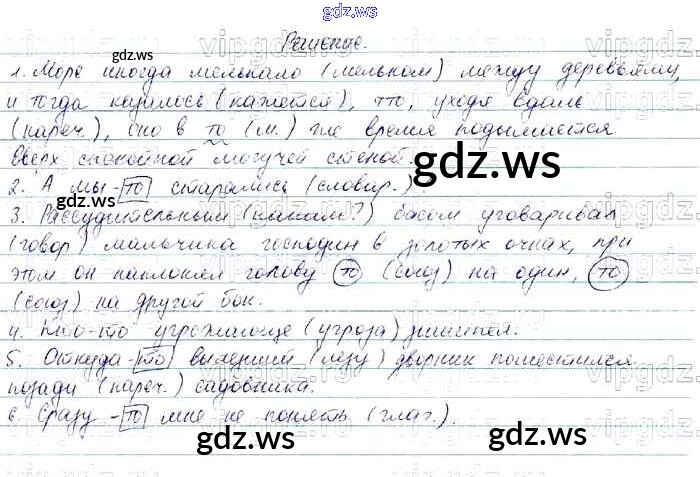 gdz.ws
Решение.
gdz.ws
1. Море иногда мелькало (мельком) между деревьями,
и тогда казалось (кажется), что, уходя вдаль
(нареч.), оно в то (м.) же время подымается
вверх спокойной могучей стеной.
gdz.ws
2. А мы-то старались (словар.).
gdz.ws
3. Рассудительным (каким?) басом уговаривал
(говор) мальчика господин в золотых очках, при
этом он наклонял голову то (союз) на один, то
(союз) на другой бок.
4. Кто-то угрожающе (угроза) зашипел.
5. Откуда-то вылезший (лезу) дворник поместился
позади (нареч.) садовника.
6. Сразу-то мне не понять (глаг.).
gdz.ws
gdz.ws
gdz.ws